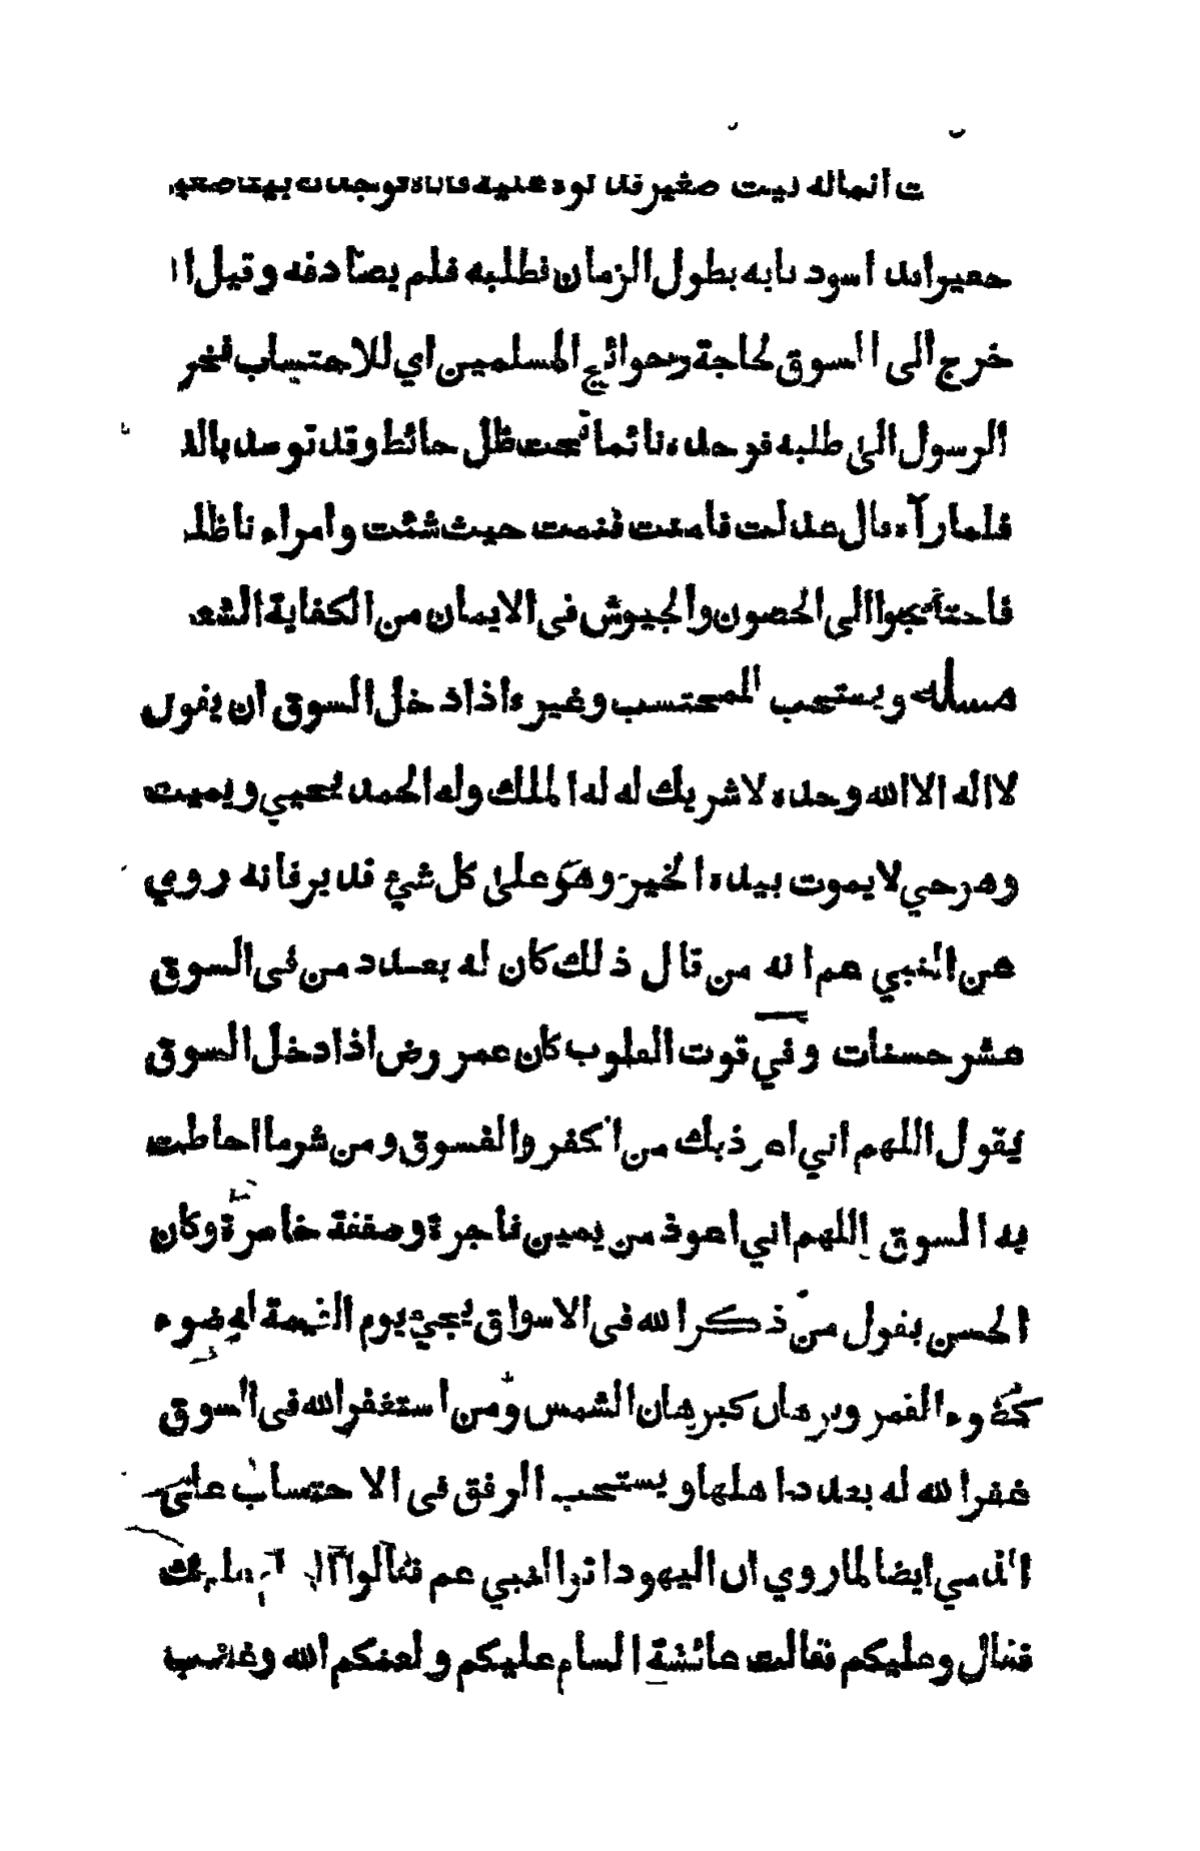 ت انما له بيت صغير قد
صغير قد اسود بابه بطول الزمان فطلبه فلم يصادفه وقيل ا
خرج الى السوق لحاجة وحوائج المسلمين اي للاحتساب فخر
الرسول الى طلبه فوجده نائما تحت ظل حائط وقد توسد بالد
فلما رآه قال عدلت فامنت فنمت حيث شئت وامراء ناظلم
فاحتاجوا الى الحصون والجيوش فى الايمان من الكفاية الشع
مسألة ويستحب للمحتسب وغيره اذا دخل السوق ان يقول
لا اله الا الله وحده لا شريك له له الملك وله الحمد يحيي ويميت
وهو حي لا يموت بيده الخير وهو على كل شئ قدير فانه روي
عن النبي عم انه من قال ذلك كان له بعدد من فى السوق
عشر حسنات وفي قوت القلوب كان عمر رض اذا دخل السوق
يقول اللهم اني اعوذ بك من الكفر والفسوق ومن شر ما احاطت
به السوق اللهم اني اعوذ من يمين فاجرة وصفقة خاسرة وكان
الحسن يقول من ذكر الله فى الاسواق يجئ يوم القيمة له ضوء
كضوء القمر وبرهان كبرهان الشمس ومن استغفر الله فى السوق
غفر الله له بعدد اهلها ويستحب الرفق فى الاحتساب على
الذمي ايضا لما روي ان اليهود اتوا النبي عم فقالوا عليك
فقال وعليكم فقالت عائشة السام عليكم ولعنكم الله وغضب